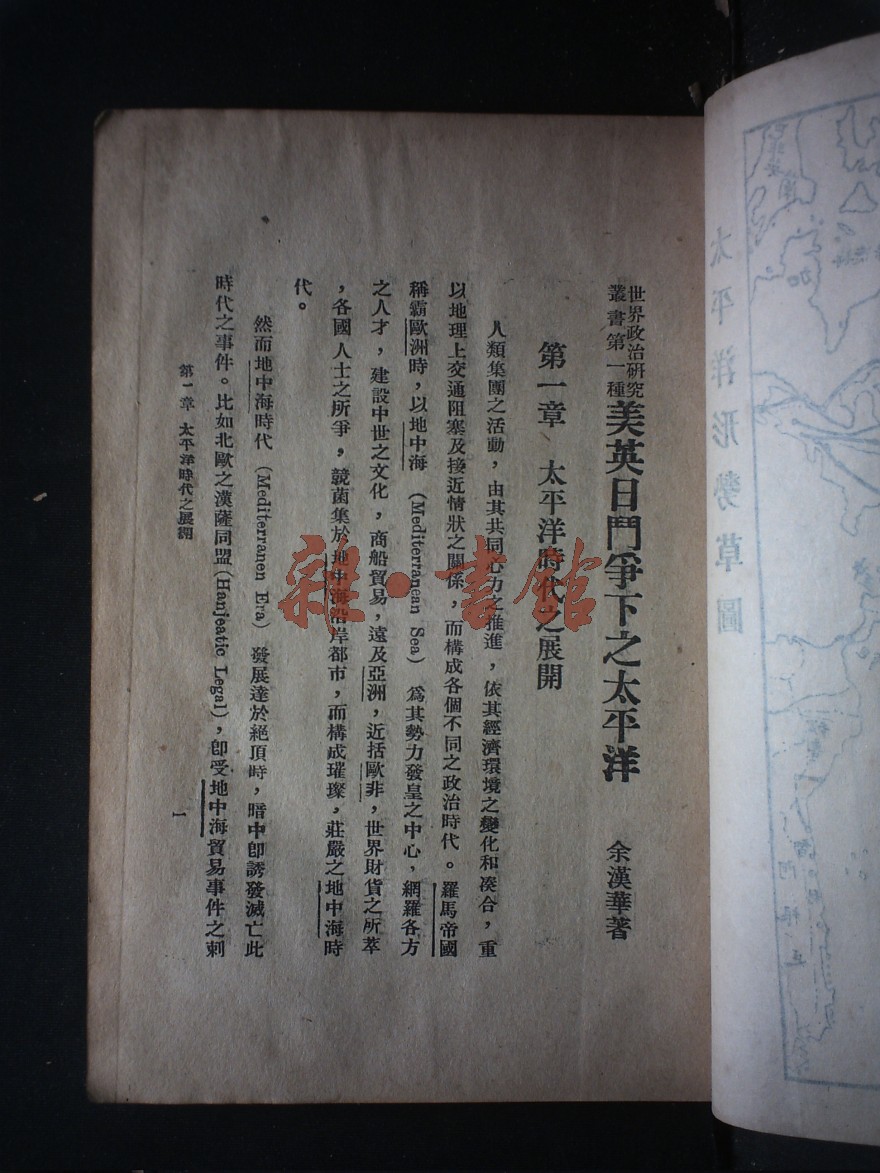 世界政治研究
叢書第一種
美英日鬥爭下之太平洋
余漢華著
第一章 太平洋時代之展開
人類集團之活動，由其共同心力之推進，依其經濟環境之變化和湊合，重
以地理上交通阻塞及接近情狀之關係，而構成各個不同之政治時代。羅馬帝國
稱霸歐洲時，以地中海 (Mediterranean Sea) 為其勢力發皇之中心，網羅各方
之人才，建設中世之文化，商船貿易，遠及亞洲，近括歐非，世界財貨之所萃
，各國人士之所爭，競菌集於地中海沿岸都市，而構成璀璨，莊嚴之地中海時
代。
然而地中海時代 (Mediterranen Era) 發展達於絕頂時，暗中卽誘發滅亡此
時代之事件。比如北歐之漢薩同盟(Hanjeatic Legal)，卽受地中海貿易事件之刺
第一章 太平洋時代之展開
一
雜·書館
太平洋形勢草圖
加